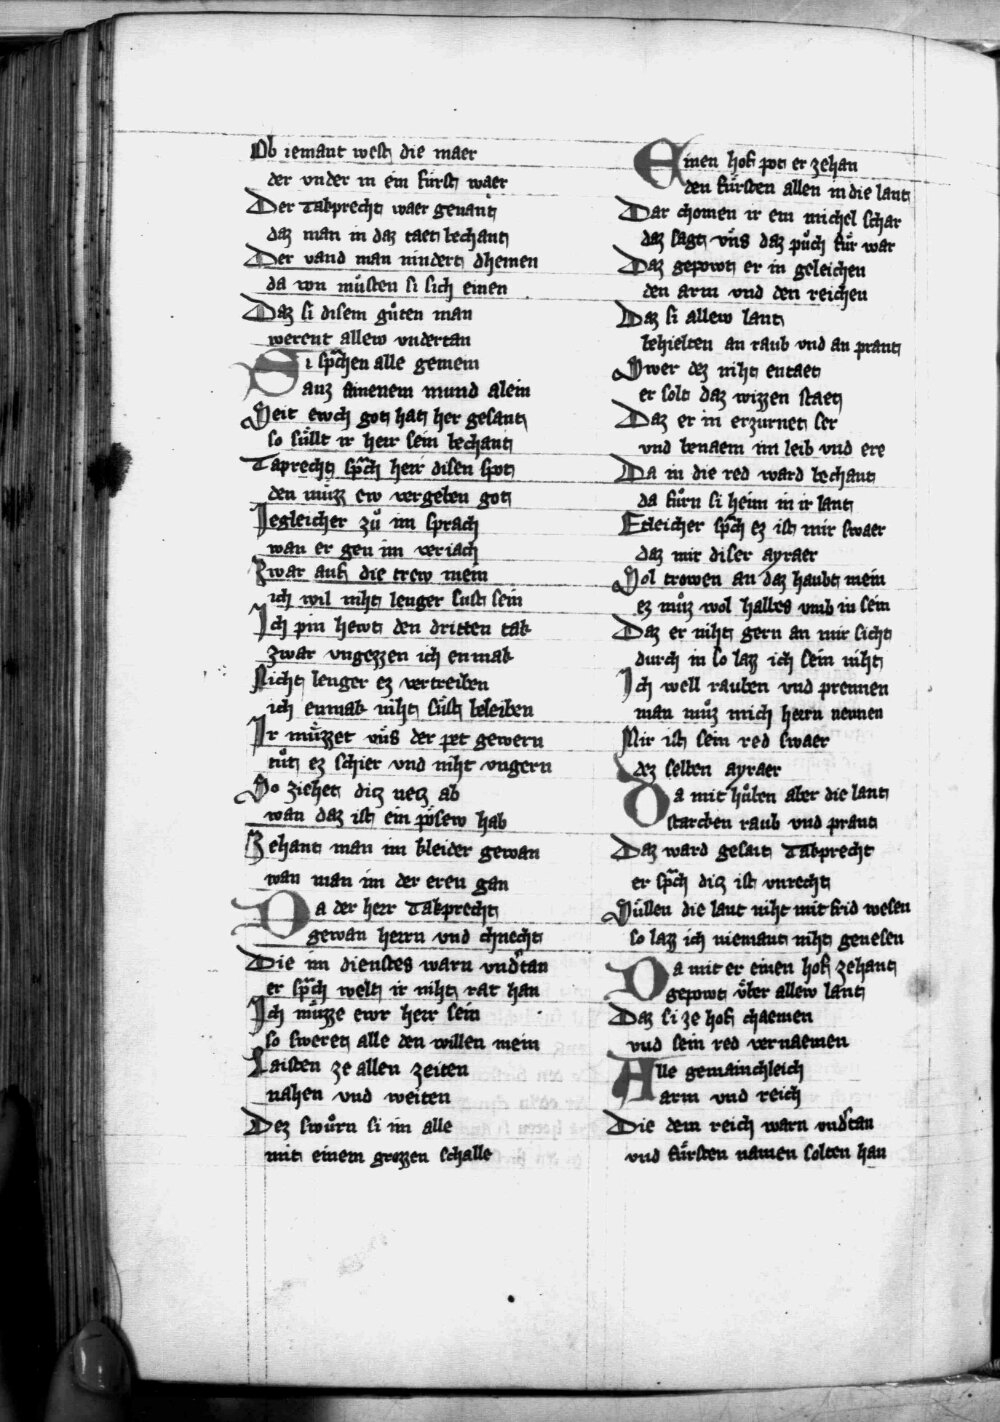 Ob iemant west die maer
der vnder in ein fürst waer
Der Takprecht waer genant
daz man in daz taet bechant
Der vand man nindert dhemen
da von müsten si sich einen
Daz si disem gůten man
werent allew vndertan
Si sprachen alle gemein
auz ainenem mund alein
Seit ewch got hat her gesant
so süllt ir herr sein bechant
Taprecht sprach herr disen spot
den müzz ew vergeben got
Iegleicher zů im sprach
wan er gen im veriach
Zwar auf die trew mein
ich wil niht lenger sust sein
Ich pin hewt den dritten tak
zwar vngezzen ich enmak
Nicht lenger ez vertreiben
ich enmak niht süst beleiben
Ir müzzet vns der pet gewern
tůt ez schier vnd niht vngern
So ziehet dicz necz ab
wan daz ist ein pösew hab
Zehant man im kleider gewan
wan man im der eren gan
Da der herr Takprecht
gewan herrn vnd chnecht
Die im dienstes warn vndertan
er sprach welt ir niht rat han
Ich müzze ewr herr sein
so sweret alle den willen mein
Laisten ze allen zeiten
nahen vnd weiten
Dez swůrn si im alle
mit einem grozzen schalle
Einen hof pot er zehan
den fürsten allen in die lant
Dar chomen ir ein michel schar
daz sagt vns daz půch für war
Daz gepowt er in geleichen
den arm vnd den reichen
Daz si allew lant
behielten an raub vnd an prant
Swer dez niht entaet
er solt daz wizzen staet
Daz er in erzurnet ser
vnd benaem im leib vnd ere
Da in die red ward bechant
da fůrn si heim in ir lant
Etleicher sprach ez ist mir swaer
daz mir diser ayraer
Sol trowen an daz haubt mein
ez můz wol halbes vmb in sein
Daz er niht gern an mir sicht
durch in so lazz ich sein niht
Ich well rauben vnd prennen
man můz mich herrn nennen
Mir ist sein red swaer
dez selben ayraer
Da mit hůben aber die lant
starcken raub vnd prant
Daz ward gesait Takprecht
er sprach dicz ist vnrecht
Süllen die laut niht mit frid wesen
so lazz ich niemant niht genesen
Da mit er einen hof zehant
gepowt über allew lant
Daz si ze hof chaemen
vnd sein red vernaemen
Alle gemainchleich
arm vnd reich
Die dem reich warn vndertan
vnd fürsten namen solten han